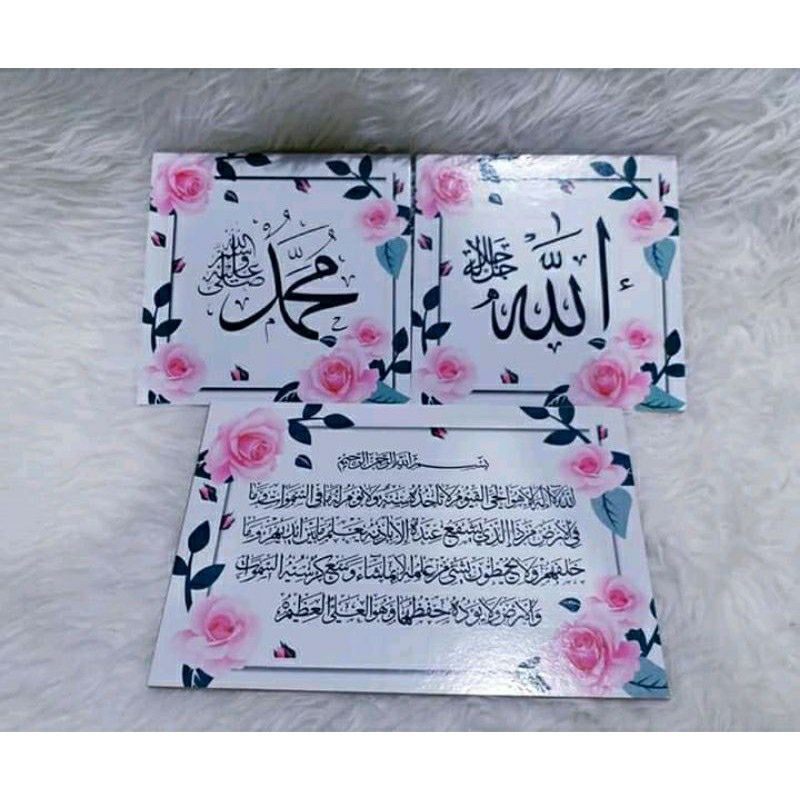 الله
جل جلاله
محمد
صلى الله عليه وسلم
بسم الله الرحمن الرحيم
الله لا إله إلا هو الحي القيوم لا تأخذه سنة ولا نوم له ما في السموات وما
في الأرض من ذا الذي يشفع عنده إلا بإذنه يعلم ما بين أيديهم وما
خلفهم ولا يحيطون بشيء من علمه إلا بما شاء وسع كرسيه السموات
والأرض ولا يؤده حفظهما وهو العلي العظيم